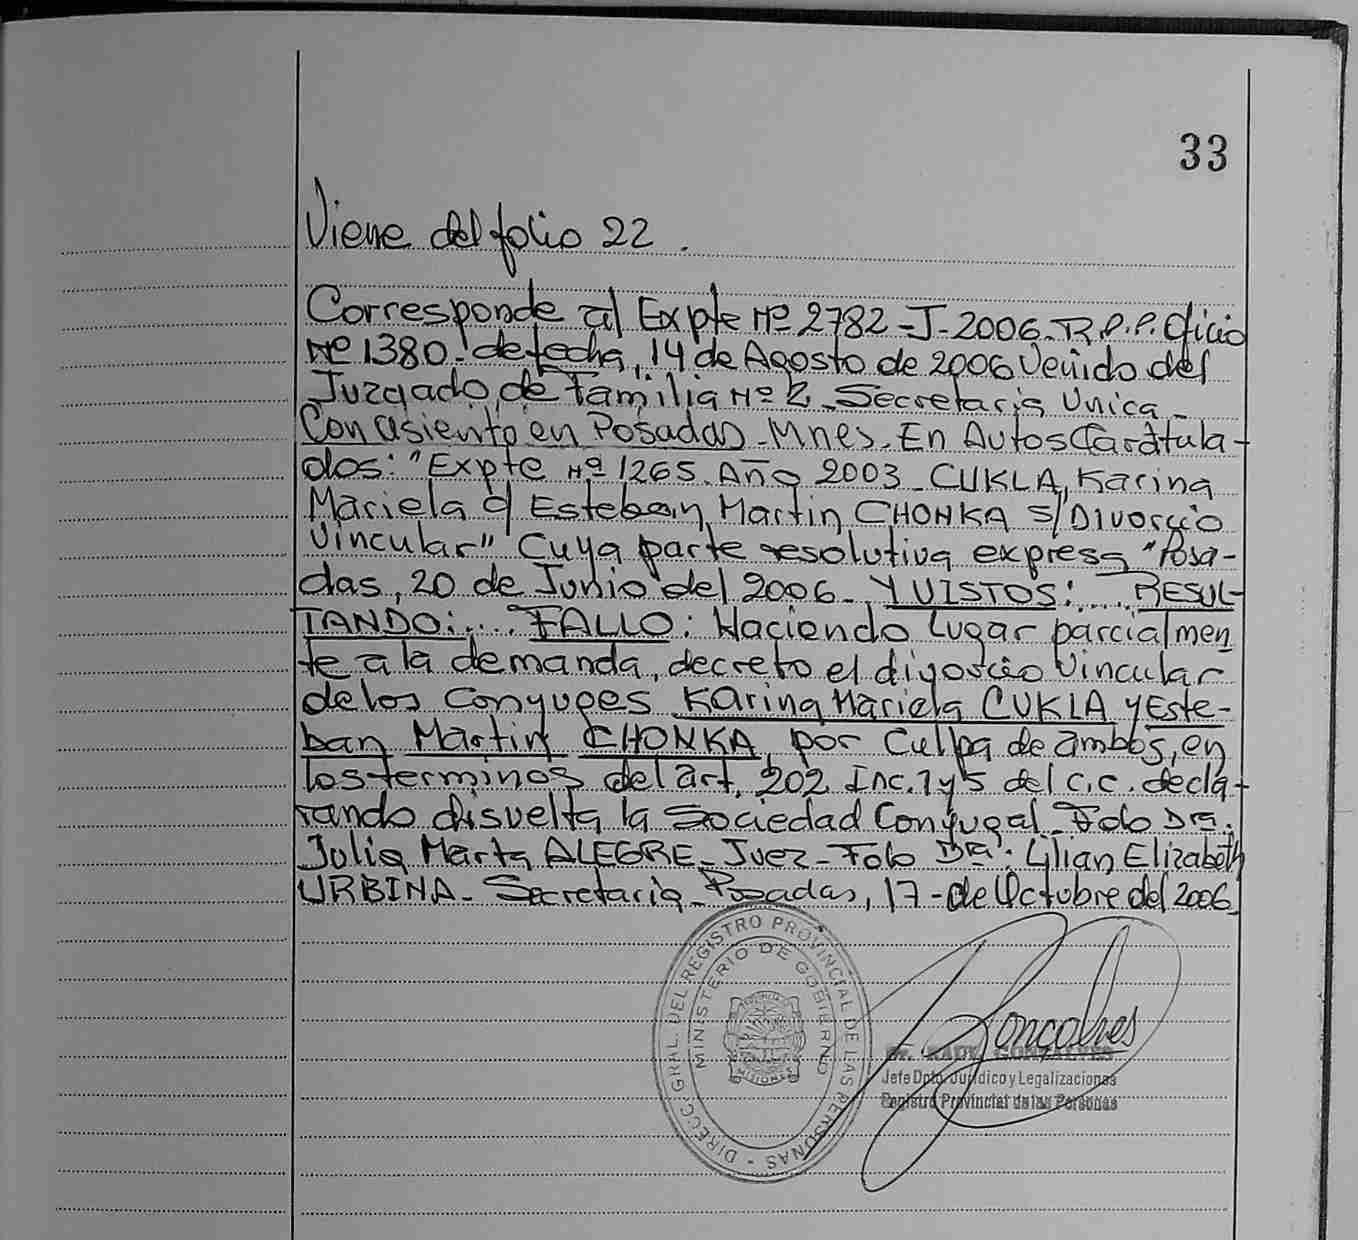 33
Viene del folio 22.
Corresponde al Expte Nº 2782-J-2006. R.P.P. Oficio
Nº 1380. de fecha, 14 de Agosto de 2006 Venido del
Juzgado de Familia Nº 2. Secretaria Unica-
Con asiento en Posadas-Mnes. En Autos Caratula-
dos: "Expte Nº 1265. Año 2003 CUKLA, Karina
Mariela c/ Esteban Martin CHONKA S/Divorcio
Vincular" Cuya parte resolutiva expresa "Posa-
das, 20 de Junio del 2006. Y VISTOS:.... RESUL-
TANDO:.... FALLO: Haciendo Lugar parcialmen
te a la demanda, decreto el divorcio Vincular
de los Conyuges Karina Mariela CUKLA y Este-
ban Martin CHONKA por Culpa de ambos, en
los terminos del art, 202 Inc. 1 y 5 del C.C. decla-
rando disuelta la Sociedad Conyugal. Fdo Dra.
Julia Marta ALEGRE-Juez-Fdo Dra. Lilian Elizabeth
URBINA-Secretaria-Posadas, 17-de Octubre del 2006
DIRECC. GRAL. DEL REGISTRO PROVINCIAL DE LAS PERSONAS -
MINISTERIO DE GOBIERNO
MISIONES
Goncalves
Dr. RAUL GONZALVES
Jefe Dpto. Jurídico y Legalizaciones
Registro Provincial de las Personas